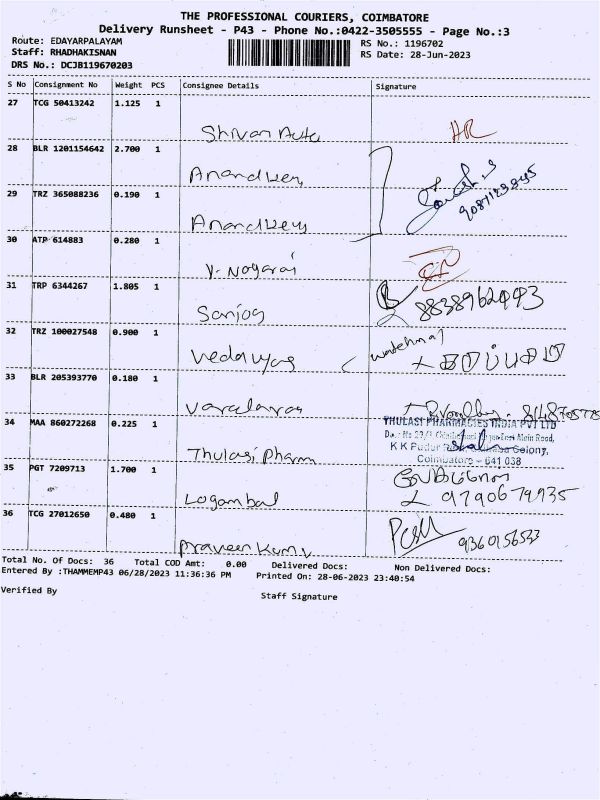 THE PROFESSIONAL COURIERS, COIMBATORE
Delivery Runsheet - P43 - Phone No.:0422-3505555 - Page No.:3
Route: EDAYARPALAYAM RS No.: 1196702
Staff: RHADHAKISNAN RS Date: 28-Jun-2023
DRS No.: DCJB119670203
S No Consignment No Weight PCS Consignee Details Signature
27 TCG 50413242 1.125 1
Shivam Auto
28 BLR 1201154642 2.700 1
29 TRZ 365088236 0.190 1
30 ATP 614883 0.280 1
V. Nagaraj
31 TRP 6344267 1.805 1
Sanjog
32 TRZ 100027548 0.900 1
Vedavyas watchman
33 BLR 205393770 0.180 1
34 MAA 860272268 0.225 1
THULASI PHARMACIES INDIA PVT LTD
Coimbatore - 641 038
Thulasi pharma
35 PGT 7209713 1.700 1
Logambal 9790679935
36 TCG 27012650 0.480 1
Praveen Kumar 9360156533
Total No. Of Docs: 36 Total COD Amt: 0.00 Delivered Docs: Non Delivered Docs:
Entered By :THAMMEMP43 06/28/2023 11:36:36 PM Printed On: 28-06-2023 23:40:54
Verified By
Staff Signature